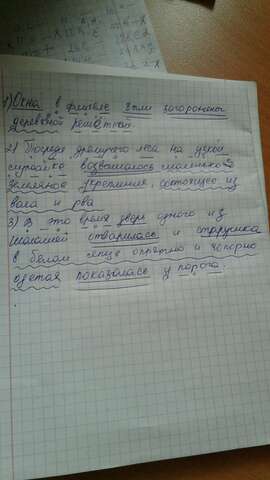 1) Окна в флигеле были загорожены
деревянной решёткой.
2) Посреди дремучего леса на узкой
лужайке возвышалось маленькое
земляное укрепление, состоящее из
вала и рва
3) В это время дверь одного из
шалашей отворилась и старушка
в белом чепце опрятно и чопорно
одетая показалась у порога.